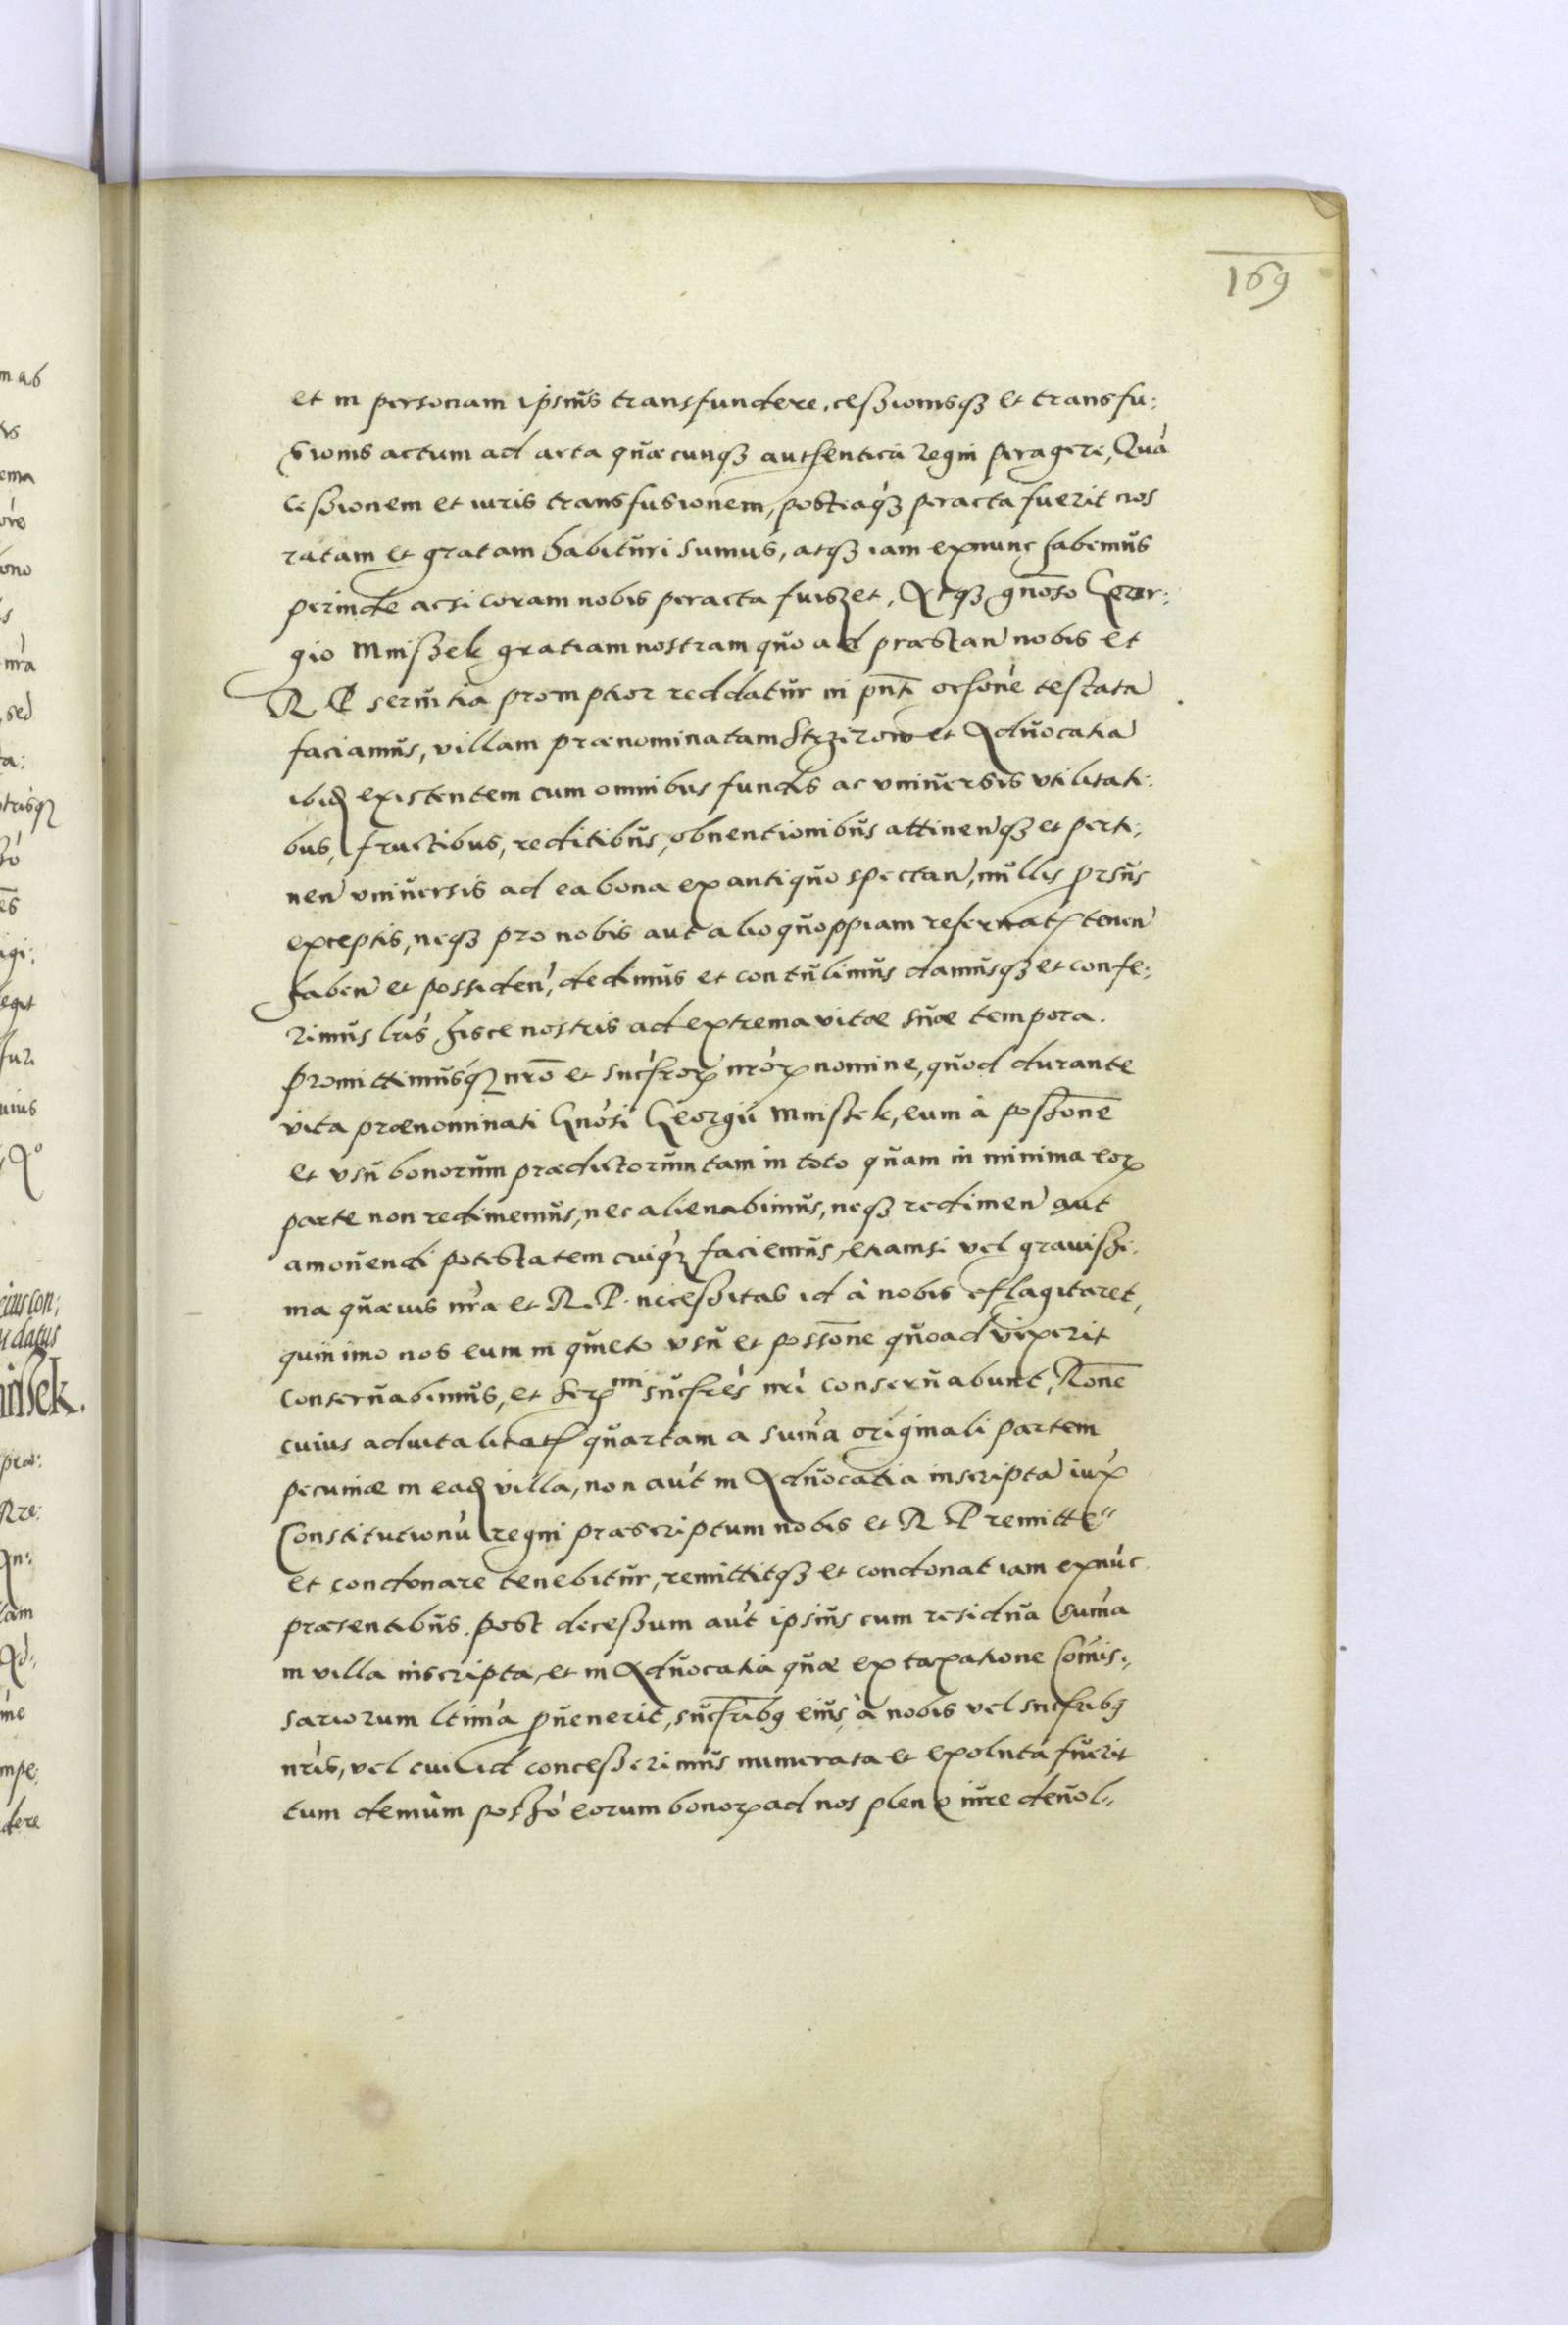 169
et in personam ipsius transfundere, cessionisqȝ et transfu:
sionis actum ad acta quæcunqȝ authentica regni peragere, Quā
cessionem et iuris transfusionem, posteaqȝ peracta fuerit nos
ratam et gratam habituri sumus, atqȝ iam exnunc habemus
perinde acsi coram nobis peracta fuisset, Atqȝ gnōso Geor:
gio Mnissek gratiam nostram quo ad præstan̄ nobis et
R P seruitia promptior reddatur in pn̄ti testatā
faciamus, villam prænominatam Strzizow et Aduocatiā
ibid existentem cum omnibus fundis ac vniuersis vtilitati:
bus, fructibus, reditibus, obuentionibus attinen̄qȝ et perti:
nen̄ vniuersis ad ea bona ex antiquo spectan̄, nullis prsus
exceptis, neqȝ pro nobis aut alio quoppiam reseruatꝭ tenen̄
haben̄ et possiden̄, dedimus et contulimus damusqȝ et confe:
rimus lr̄is hisce nostris ad extrema vitæ suæ tempora.
Promittimusqȝ nr̄o et suc̄soꝝ nr̄oꝝ nomine, quod durante
vita prænominati Gnōsi Georgii Mnissek, eum à possōne
et vsu bonorum prædictorum tam in toto quam in minima eoꝝ
parte non redimemus, nec alienabimus, neqȝ redimen̄ aut
amouendi potestatem cuiqȝ faciemus, etiamsi vel grauissi:
ma quæuis nr̄a et R. P. necessitas id à nobis efflagitaret,
quinimo nos eum in quieto vsu et possōne quoad vixerit
conseruabimus, et Serᵐⁱ suc̄sres nr̄i conseruabunt, Rōne
cuius aduitalitatꝭ quartam a sum̄a originali partem
pecuniæ in ead villa, non aūt in Aduocatia inscriptā iux̄
Constitutionū regni præscriptum nobis et R P remitte"
et condonare tenebitur, remittitqȝ et condonat iam exnūc
præsentibus. Post decessum aūt ipsius cum residua sum̄a
in villa inscripta, et in Aduocatia quæ ex taxatione Com̄is:
sariorum ltima ꝓuenerit, suc̄sribȝ eius, à nobis vel suc̄sribȝ
nr̄is, vel cui id concesserimus numerata et exoluta fuerit
tum demùm possō eorum bonoꝝ ad nos pleno iure deuol"